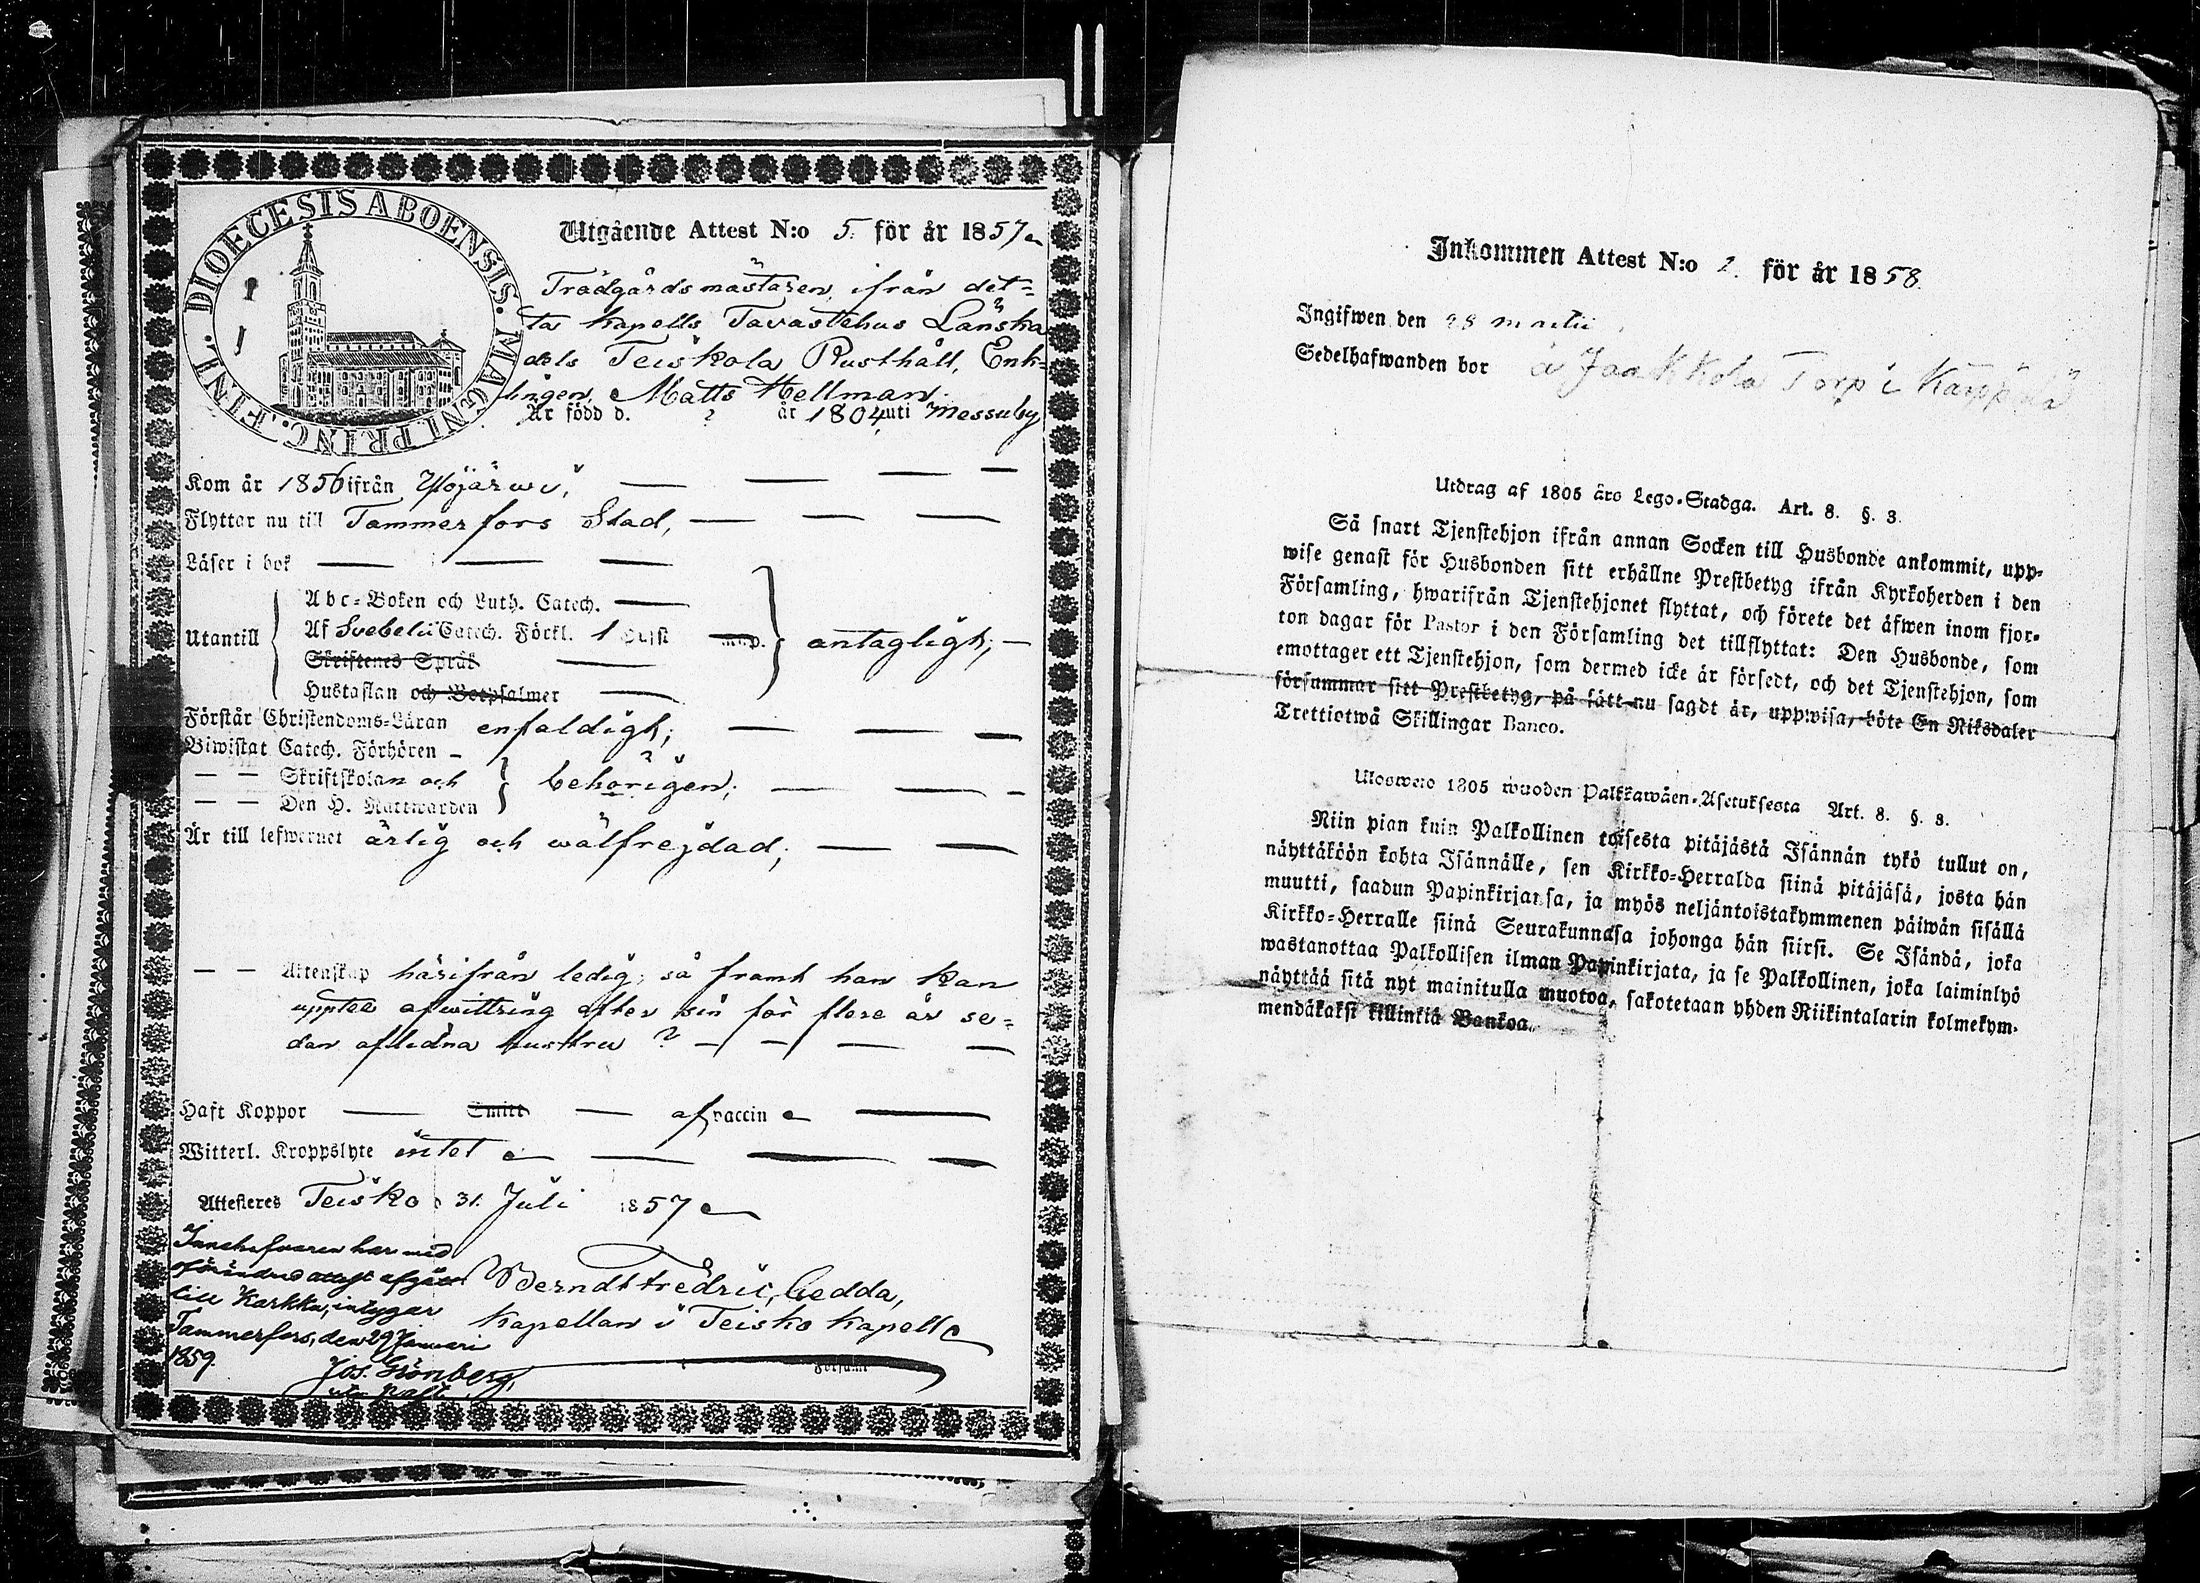 DIOECESIS ABOENSIS. MAGNI PRINC. FINL.
Utgående Attest N:o 5. för år 1857
Trädgårdsmästaren ifrån det=
ta kapells Tavastehus Länska
dels Teiskola Rusthåll, Enk=
lingen, Matts Hellman.
Är född d. ? år 1804 uti Messuby
Kom år 1856 ifrån Ylöjärwi,
Flyttar nu till Tammerfors Stad,
Läser i bok
Utantill
Abc-Boken och Luth. Catech.
Af Svebelii Catech. Förkl. 1
Skriftenes Språk
Hustaflan och Botpsalmer
antagligt;
Förstår Christendoms-Läran enfaldigt;
Biwistat Catech. Förhören
Skriftskolan och
Den H. Nattwarden
behörigen;
Är till lefwernet ärlig och wälfrejdad;
Äktenskap härifrån ledig, så framt han kan
uppte afwittring efter sin för flere år se=
dan aflidna hustru ?
Haft Koppor Smitt af vaccin
Witterl. Kroppslyte intet
Attesteras Teisko d 31. Juli 1857
Berndt Fredric Gedda,
Kapellan i Teisko Kapell
Församl
Innehafvaren har med
oförändrad attest afgått
till Karkku, intygar
Tammerfors, den 29 Januari
1859.
Jos. Grönberg,
Inkommen Attest N:o 2. för år 1858.
Ingifwen den 28 martii
Sedelhafwanden bor å Jaakkola Torp i Karppala
Utdrag af 1805 års Lego-Stadga. Art. 8. §. 3.
Så snart Tjenstehjon ifrån annan Socken till Husbonde ankommit, upp-
wise genast för Husbonden sitt erhållne Prestbetyg ifrån Kyrkoherden i den
Församling, hwarifrån Tjenstehjonet flyttat, och förete det äfwen inom fjor-
ton dagar för Pastor i den Församling det tillflyttat: Den Husbonde, som
emottager ett Tjenstehjon, som dermed icke är försedt, och det Tjenstehjon, som
försummar sitt Prestbetyg, på sätt nu sagdt är, uppwisa, böte En Riksdaler
Trettiotwå Skillingar Banco.
Ulosweto 1805 wuoden Palkkawäen-Asetuksesta Art. 8. §. 3.
Niin pian kuin Palkollinen toisesta pitäjästä Isännän tykö tullut on,
näyttäköön kohta Isännälle, sen Kirkko-Herralda siinä pitäjäsä, josta hän
muutti, saadun Papinkirjansa, ja myös neljäntoistakymmenen päiwän sisällä
Kirkko-Herralle siinä Seurakunnasa johonga hän siirsi. Se Isändä, joka
wastanottaa Palkollisen ilman Papinkirjata, ja se Palkollinen, joka laiminlyö
näyttää sitä nyt mainitulla muotoa, sakotetaan yhden Riikintalarin kolmekym-
mendäkaksi killinkiä Bankoa.